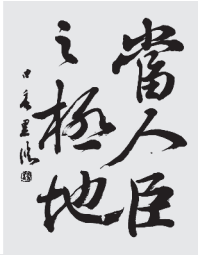 當人臣
之極地